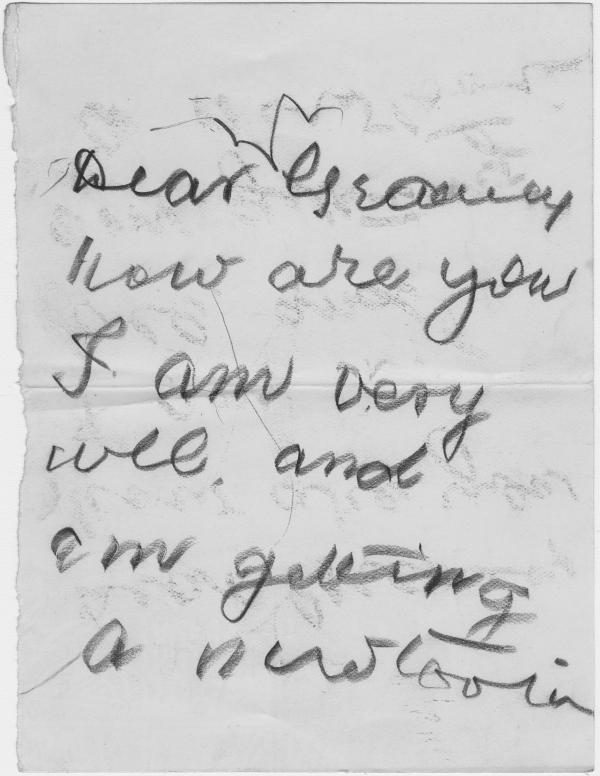 Dear Granny
how are you
I am very
well. and
am getting
a new